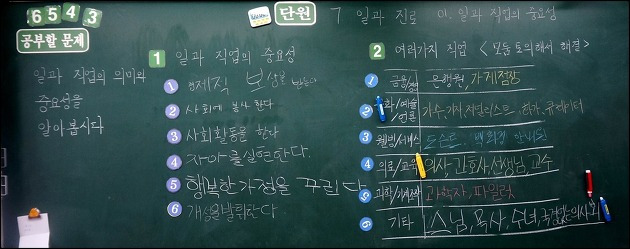 6 5 4 3
단원 7 일과 진로 01. 일과 직업의 중요성
공부할 문제
일과 직업의 의미와
중요성을
알아봅시다
1 일과 직업의 중요성
1 경제적 보상을 받는다
2 사회에 봉사 한다
3 사회활동을 한다
4 자아를실현한다.
5 행복한 가정을 꾸린다
6 개성을발휘한다
2 여러가지 직업 < 모둠 토의해서 해결 >
1 은행원, 가게점장
2 문화/예술 언론 가수, 기자, 저널리스트, 화가, 큐레이터
3
4 의료/교육 의사, 간호사, 선생님, 교수
5 과학/기계 과학자, 파일럿
6 기타 스님, 목사, 수녀, 국경없는의사회